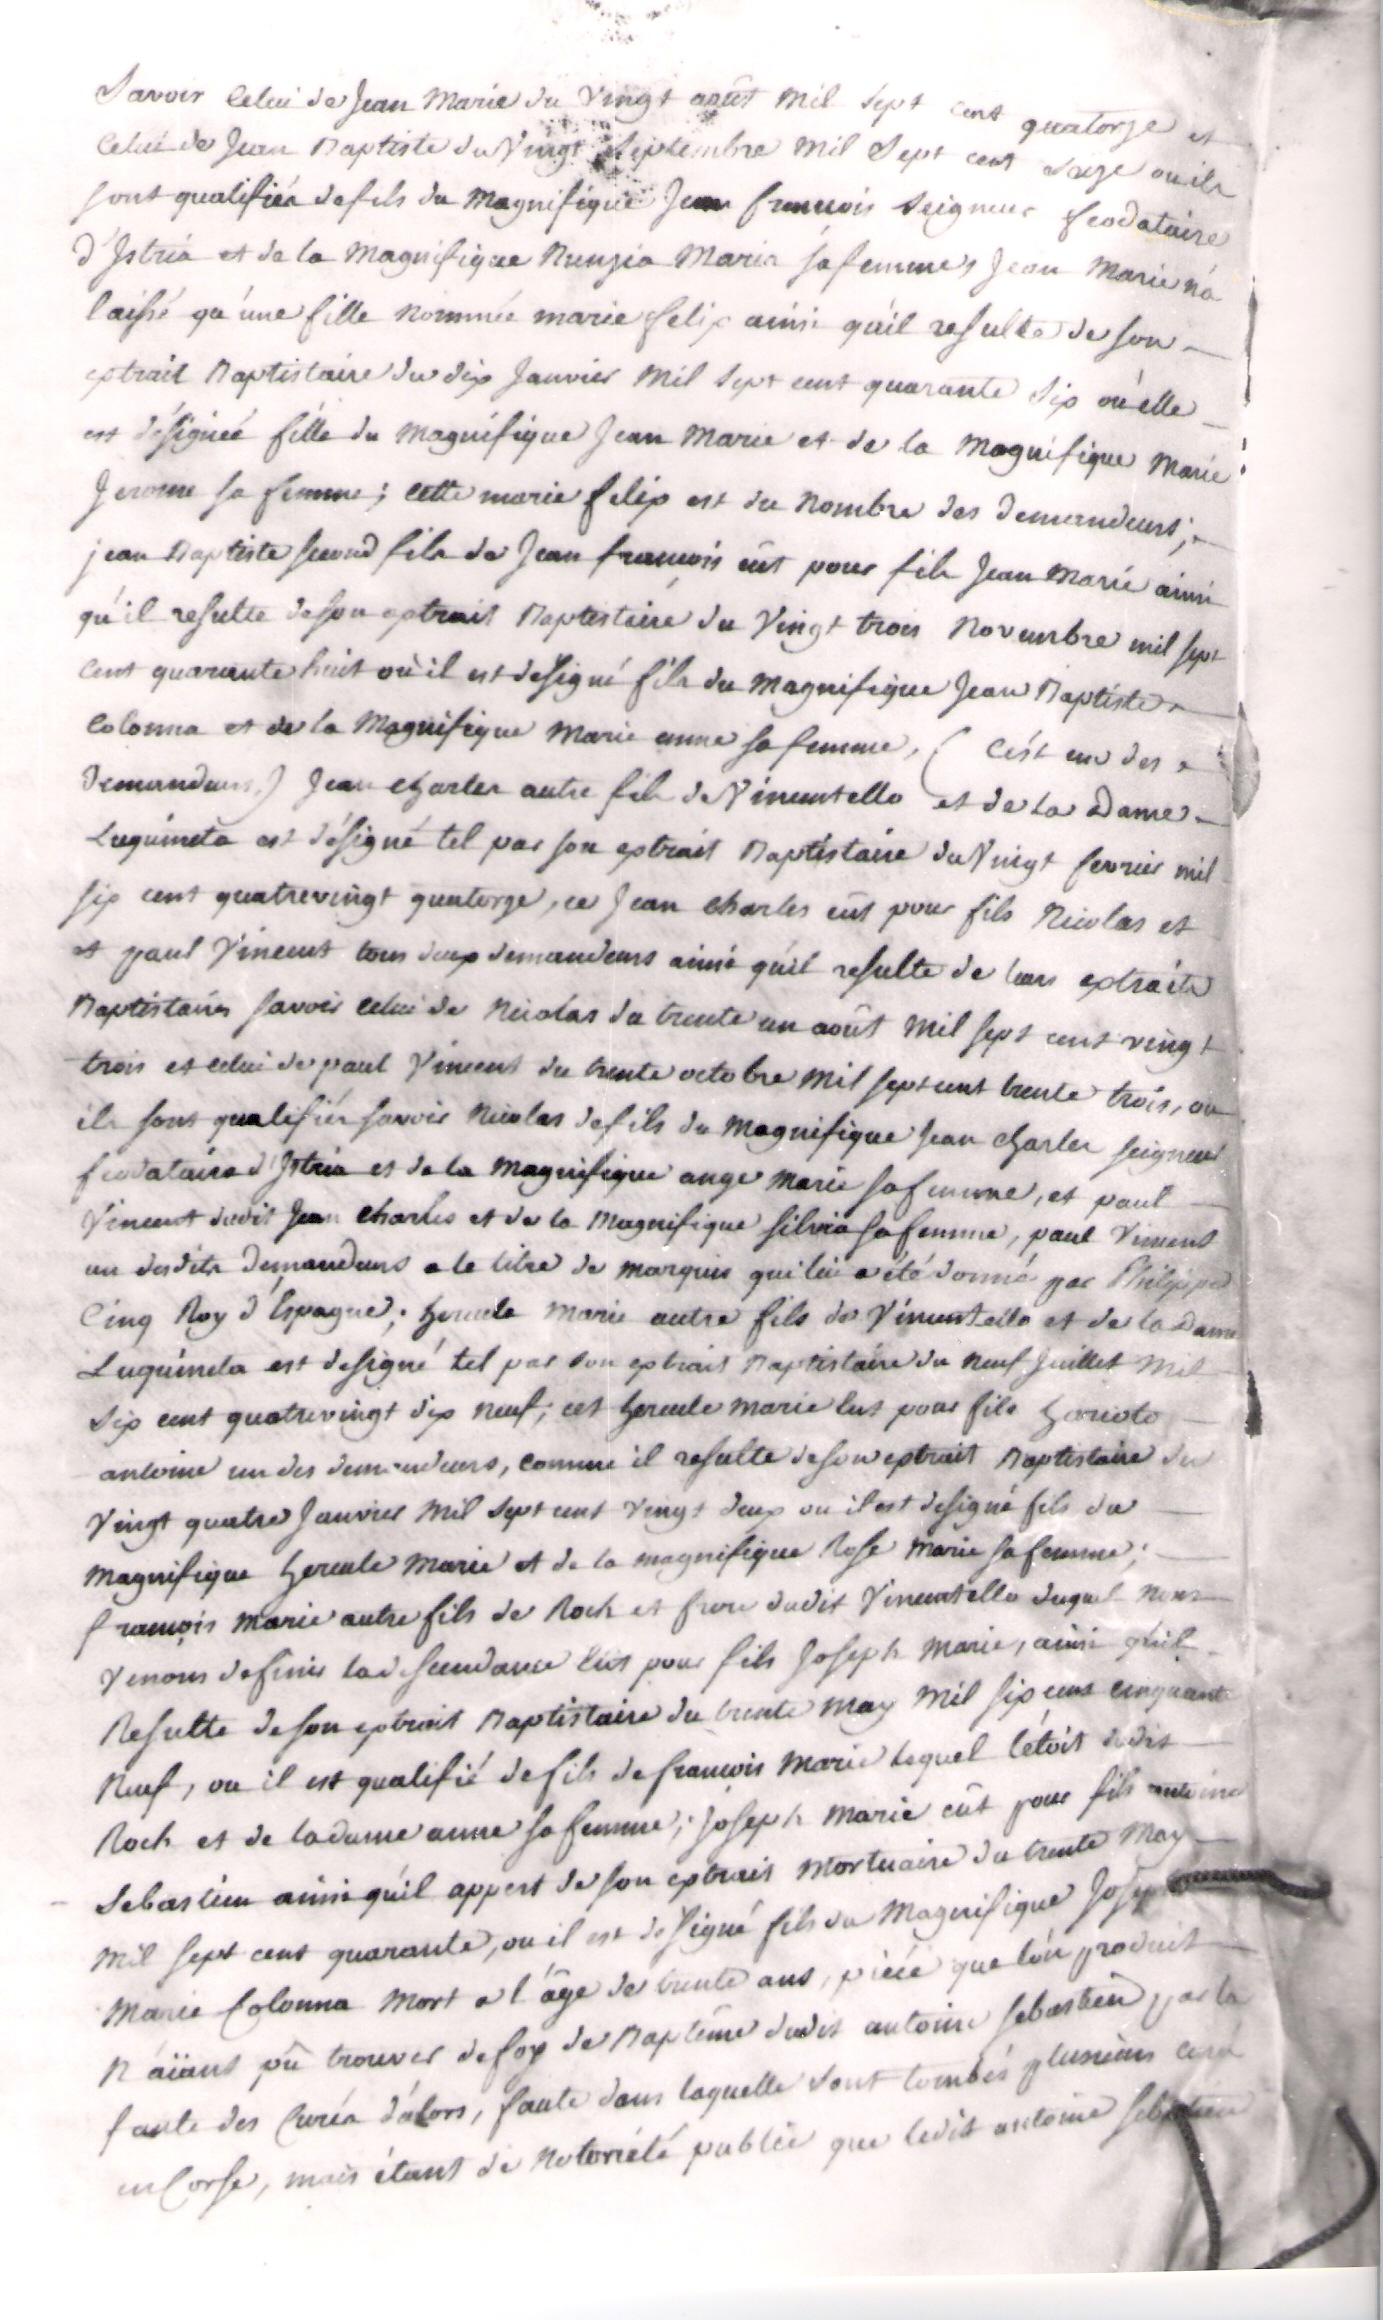 Savoir celui de Jean Marie du Vingt août mil sept cent quatorze et
celui de Jean Baptiste du Vingt Septembre mil sept cent seize ou ils
sont qualifiés de fils du Magnifique Jean françois Seigneur feodataire
d'Istria et de la Magnifique Nunzia Maria sa femme, Jean Marie n'a
laissé qu'une fille nommée marie felix ainsi qu'il resulte de son
extrait Baptistaire du dix Janvier mil sept cent quarante six où elle
est désignée fille du Magnifique Jean Marie et de la Magnifique Marie
Jerome sa femme; cette marie felix est du nombre des demandeurs;
jean Baptiste second fils de Jean françois eût pour fils Jean Marie ainsi
qu'il resulte de son extrait Baptistaire du Vingt trois Novembre mil sept
cent quarante huit où il est designé fils du Magnifique Jean Baptiste
Colonna et de la Magnifique Marie anne sa femme, (C'est un des
demandeurs,) Jean charles autre fils de Vincentello et de la Dame
Luquineta est désigné tel par son extrait Baptistaire du Vingt fevrier mil
six cent quatrevingt quatorze, ce Jean Charles eût pour fils Nicolas et
et paul Vincent tous deux demandeurs ainsi qu'il resulte de leurs extraits
Baptistaires savoir celui de Nicolas du trente un août mil sept cent vingt
trois et celui de paul Vincent du trente octobre mil sept cent trente trois, ou
ils sont qualifiés savoir Nicolas de fils du Magnifique Jean charles seigneur
feodataire d'Istria et de la Magnifique ange Marie sa femme, et paul
Vincent dudit Jean Charles et de la Magnifique Silvia sa femme, paul Vincent
un desdits Demandeurs a le titre de marquis qui lui a été donné par Philippe
Cinq Roy d'Espagne; hercule Marie autre fils de Vincentello et de la Dame
Luquineta est designé tel par son extrait Baptistaire du neuf Juillet Mil
six cent quatrevingt dix neuf; cet hercule marie eut pour fils
antoine un des demandeurs, comme il resulte de son extrait Baptistaire du
Vingt quatre Janvier Mil sept cent vingt deux ou il est designé fils du
Magnifique hercule Marie et de la magnifique Rose Marie sa femme;
françois Marie autre fils de Roch et frere dudit Vincentello duquel nous
Venons de finir la descendance eût pour fils Joseph Marie, ainsi qu'il
Resulte de son extrait Baptistaire du trente May Mil six cent cinquante
Neuf, ou il est qualifié de fils de françois Marie lequel l'étoit dudit
Roch et de la dame anne sa femme; Joseph Marie eût pour fils antoine
Sebastien ainsi qu'il appert de son extrait Mortuaire du trente May
Mil sept cent quarante, ou il est designé fils du Magnifique Joseph
Marie Colonna Mort a l'âge de trente ans, piéce que l'on produit
N'aïant pû trouver de foy de Baptême dudit antoine Sebastien par la
faute des Curés d'alors, faute dans laquelle sont tombés plusieurs curé
en Corse, mais étant de Notoriété publie que ledit antoine Sebastien